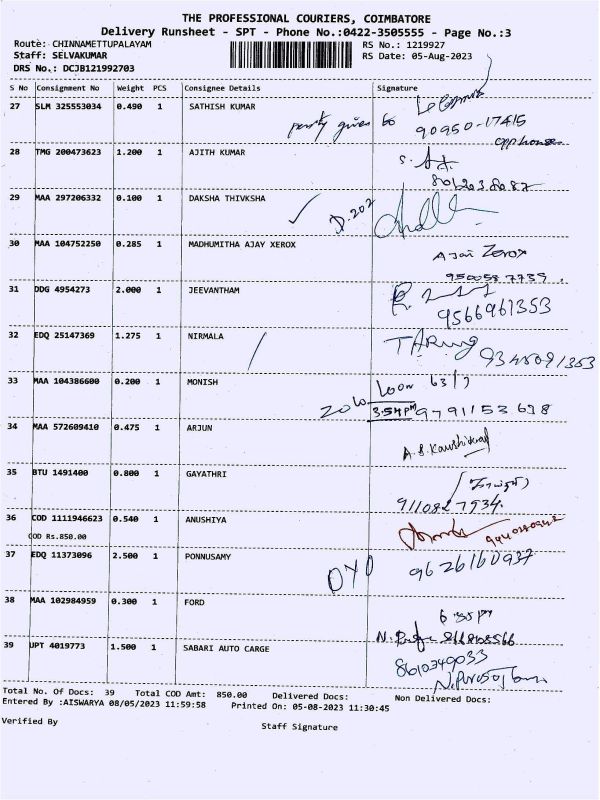 THE PROFESSIONAL COURIERS, COIMBATORE
Delivery Runsheet - SPT - Phone No.:0422-3505555 - Page No.:3
Route: CHINNAMETTUPALAYAM RS No.: 1219927
Staff: SELVAKUMAR RS Date: 05-Aug-2023
DRS No.: DCJB121992703
S No Consignment No Weight PCS Consignee Details Signature
27 SLM 325553034 0.490 1 SATHISH KUMAR
party given to 90950-17415
opp house
28 TMG 200473623 1.200 1 AJITH KUMAR
29 MAA 297206332 0.100 1 DAKSHA THIVKSHA D.202
30 MAA 104752250 0.285 1 MADHUMITHA AJAY XEROX
Ajai Zerox
31 DDG 4954273 2.000 1 JEEVANTHAM
9566961353
32 EDQ 25147369 1.275 1 NIRMALA
9345091353
33 MAA 104386600 0.200 1 MONISH
Zolo
3.54 PM
34 MAA 572609410 0.475 1 ARJUN
A.S.Kaushik
35 BTU 1491400 0.800 1 GAYATHRI
9110827934.
36 COD 1111946623 0.540 1 ANUSHIYA
COD Rs.850.00
37 EDQ 11373096 2.500 1 PONNUSAMY
OYO 9626160937
38 MAA 102984959 0.300 1 FORD
6:35 pm
39 UPT 4019773 1.500 1 SABARI AUTO CARGE
8610349033
Total No. Of Docs: 39 Total COD Amt: 850.00 Delivered Docs: Non Delivered Docs:
Entered By :AISWARYA 08/05/2023 11:59:58 Printed On: 05-08-2023 11:30:45
Verified By
Staff Signature